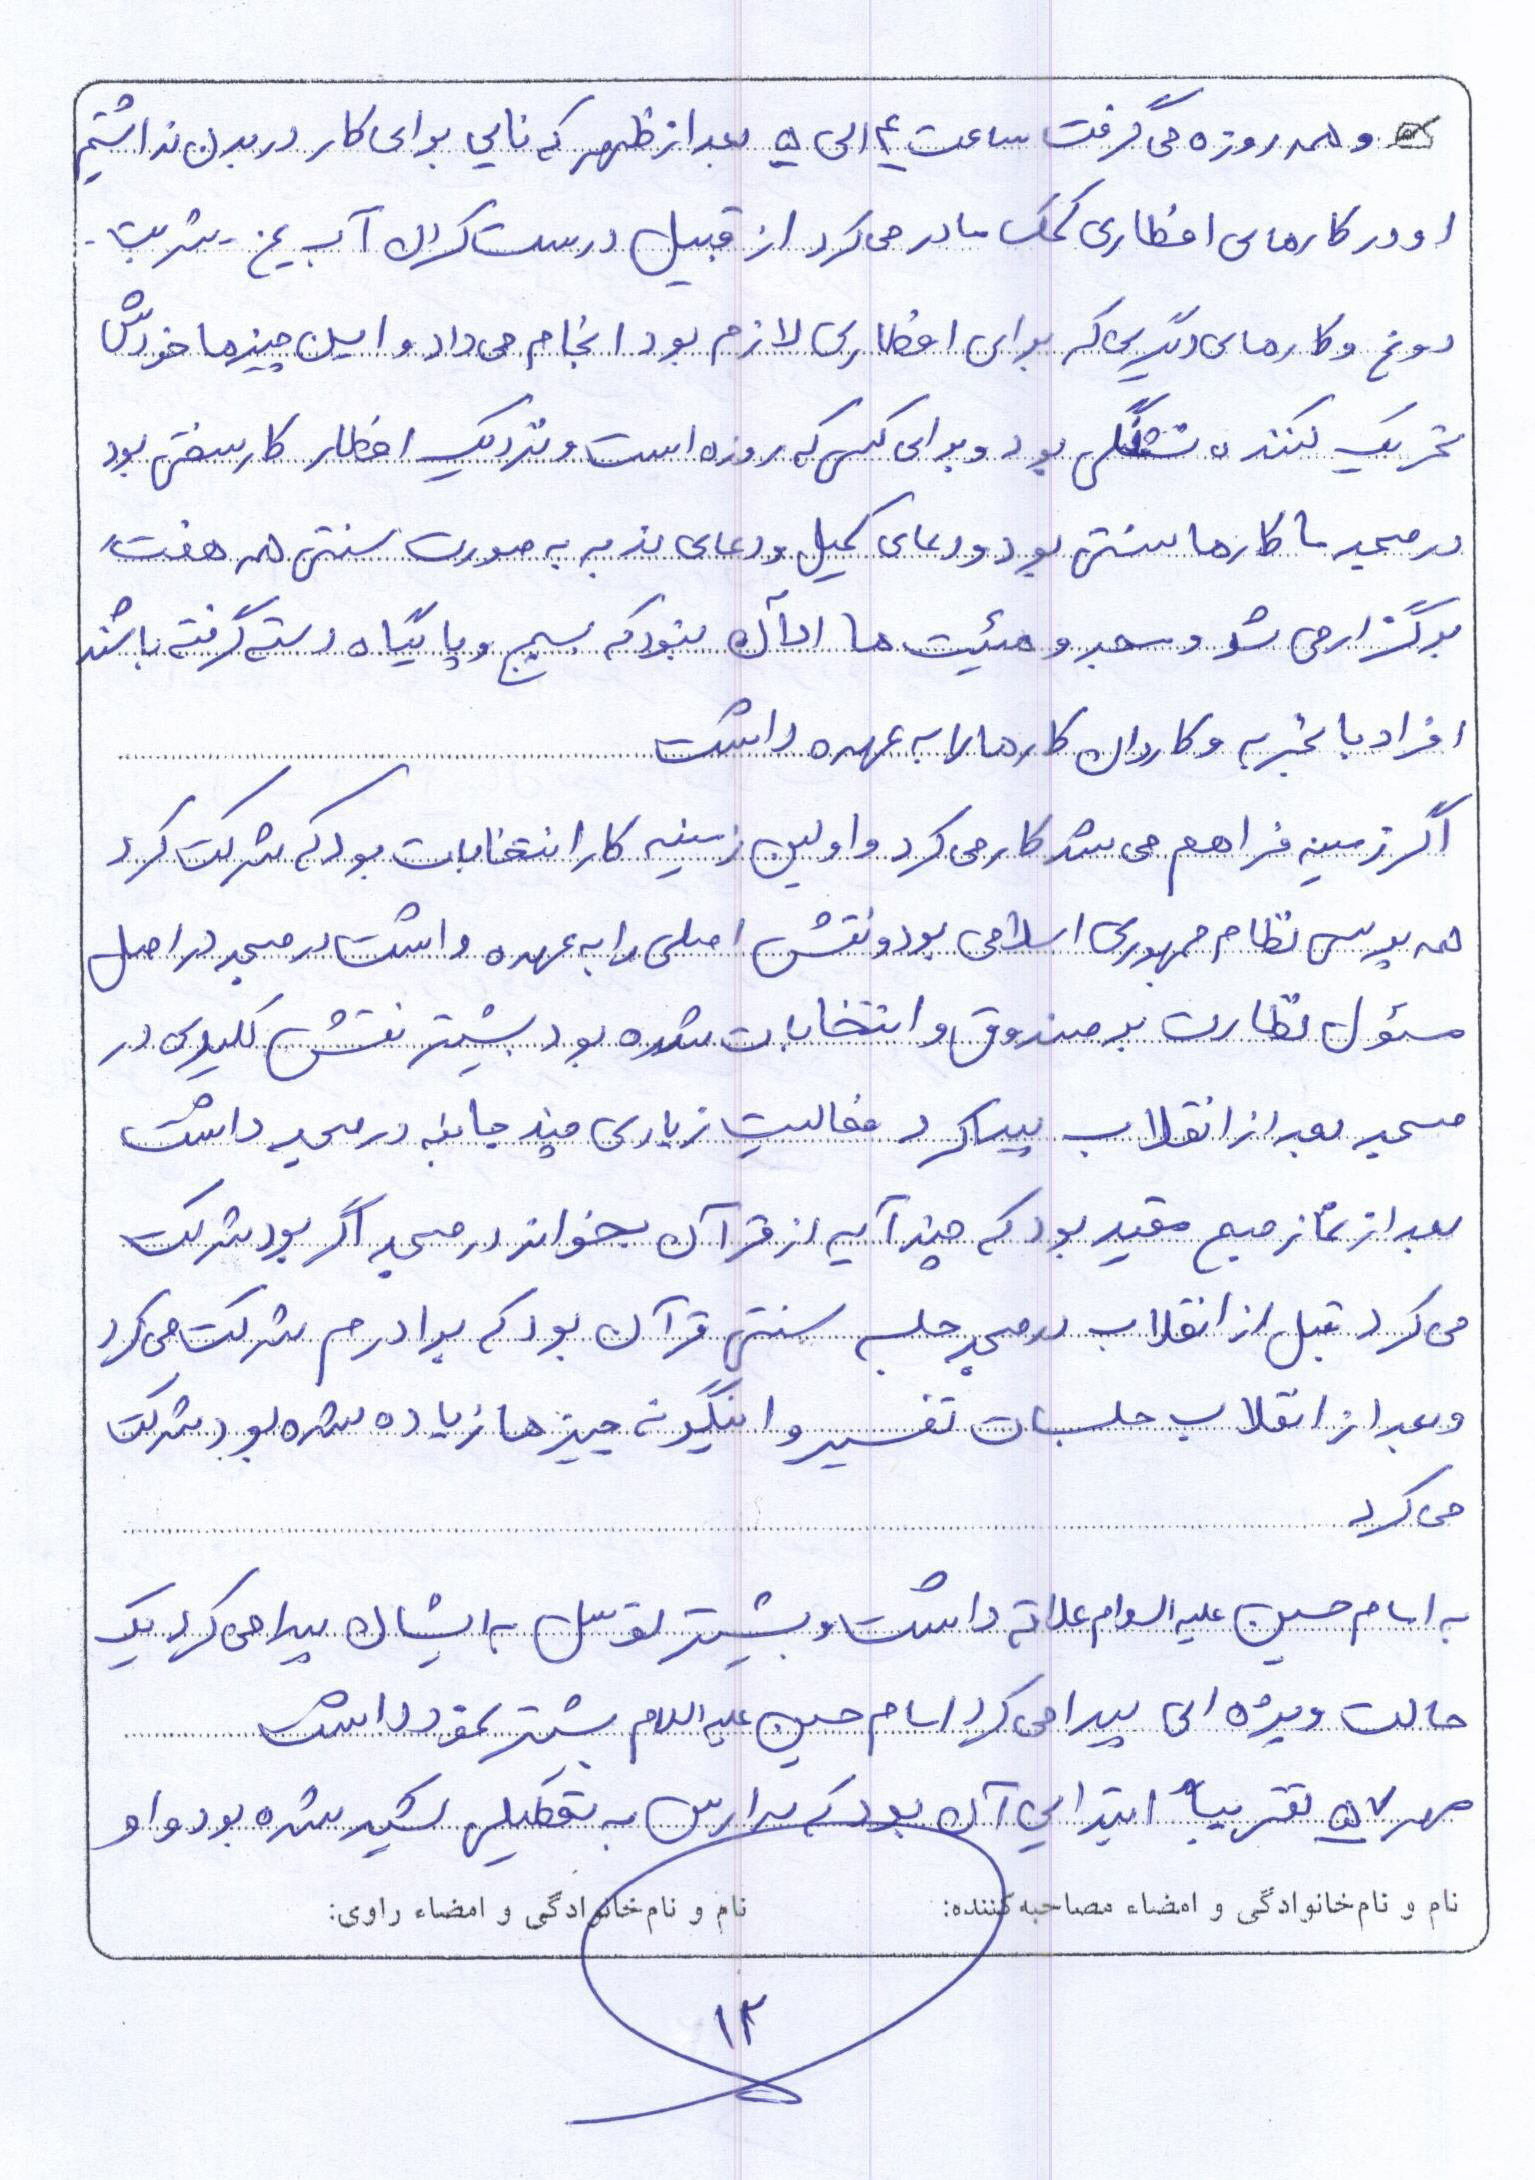 و همه روزه می گرفت ساعت ۴ الی ۵ بعد از ظهر که نایی برای کار در بدن نداشتیم
او در کارهای افطاری کمک مادر می کرد از قبیل درست کردن آب یخ - شربت -
دوغ و کارهای دیگری که برای افطاری لازم بود انجام می داد و این چیزها خودش
تحریک کننده تشنگی بود و برای کسی که روزه است و نزدیک افطار کار سختی بود
در مسجد ما کارها سنتی بود و دعای کمیل و دعای ندبه به صورت سنتی همه هفته
برگزار می شد و مسجد و هیئت ها الآن نبود که بسیج و پایگاه دسته گرفته باشند
افراد با تجربه و کاردان کارها را به عهده داشت
اگر زمینه فراهم می شد کار می کرد و اولین زمینه کار انتخابات بود که شرکت کرد
همه پرسی نظام جمهوری اسلامی بود و نقش اصلی را به عهده داشت در مسجد در اصل
مسئول نظارت بر صندوق و انتخابات شده بود بیشتر نقش کلیدی در
مسجد بعد از انقلاب پیدا کرد فعالیت زیادی چند جانبه در مسجد داشت
بعد از نماز صبح مقید بود که چند آیه از قرآن بخواند در مسجد اگر بود شرکت
می کرد قبل از انقلاب در مسجد جلسه سنتی قرآن بود که برادرم شرکت می کرد
و بعد از انقلاب جلسات تفسیر و اینگونه چیزها زیاده شده بود شرکت
می کرد
به امام حسین علیه السلام علاقه داشت و بیشتر توسل به ایشان پیدا می کرد یک
حالت ویژه ای پیدا می کرد امام حسین علیه السلام بیشتر نمود داشت
مهر ۵۷ تقریباً ابتدایی آن بود که مدارس به تعطیلی کشید شده بود و او
نام و نام‌خانوادگی و امضاء مصاحبه‌کننده: نام و نام‌خانوادگی و امضاء راوی:
۱۲